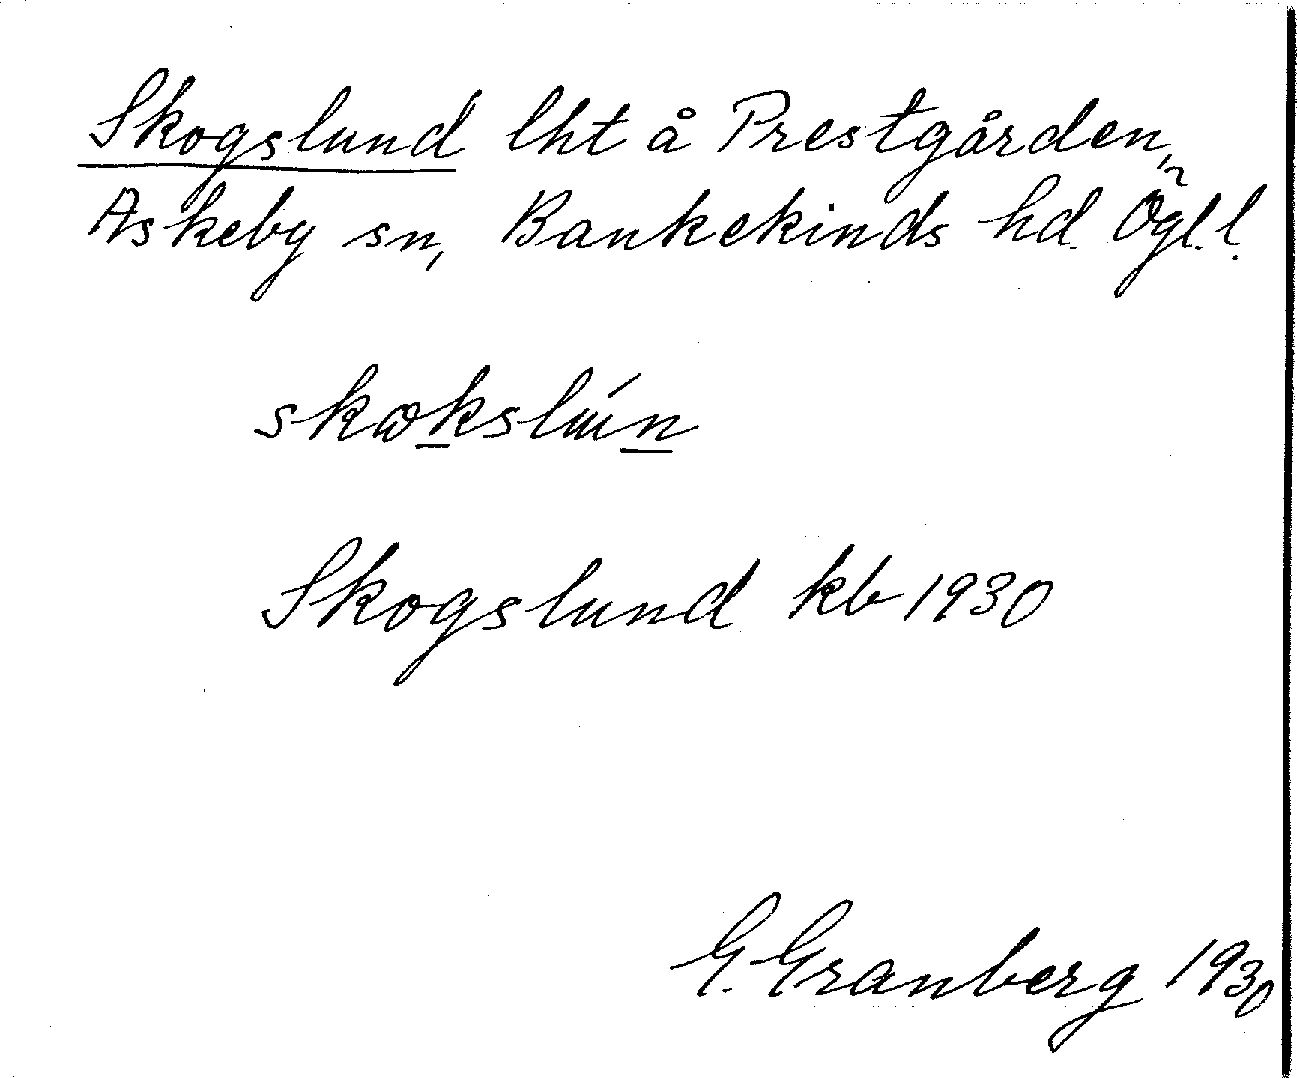 Skogslund lht å Prestgården,
Askeby sn, Bankekinds hd. Ögl. l.
skωkslun
Skogslund kb 1930
G. Granberg 1930